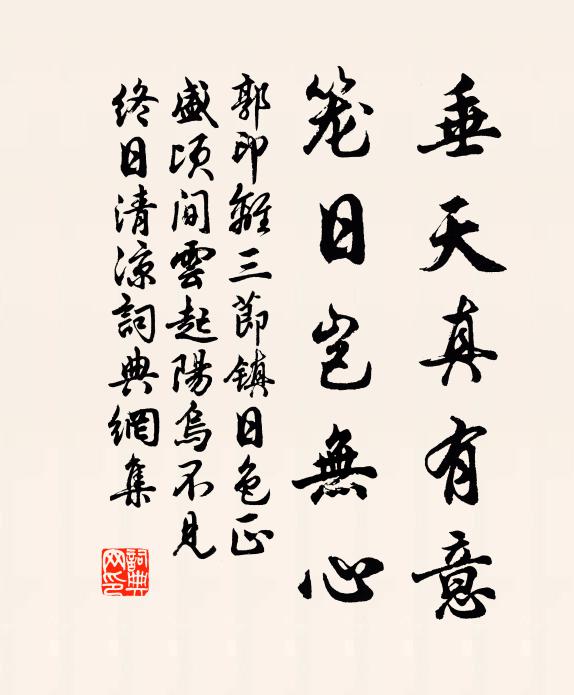 垂天真有意
笼日岂無心
郭印離三節鎮日色正
盛頃间雲起陽烏不見
終日清凉詞典網集
詞典
网印